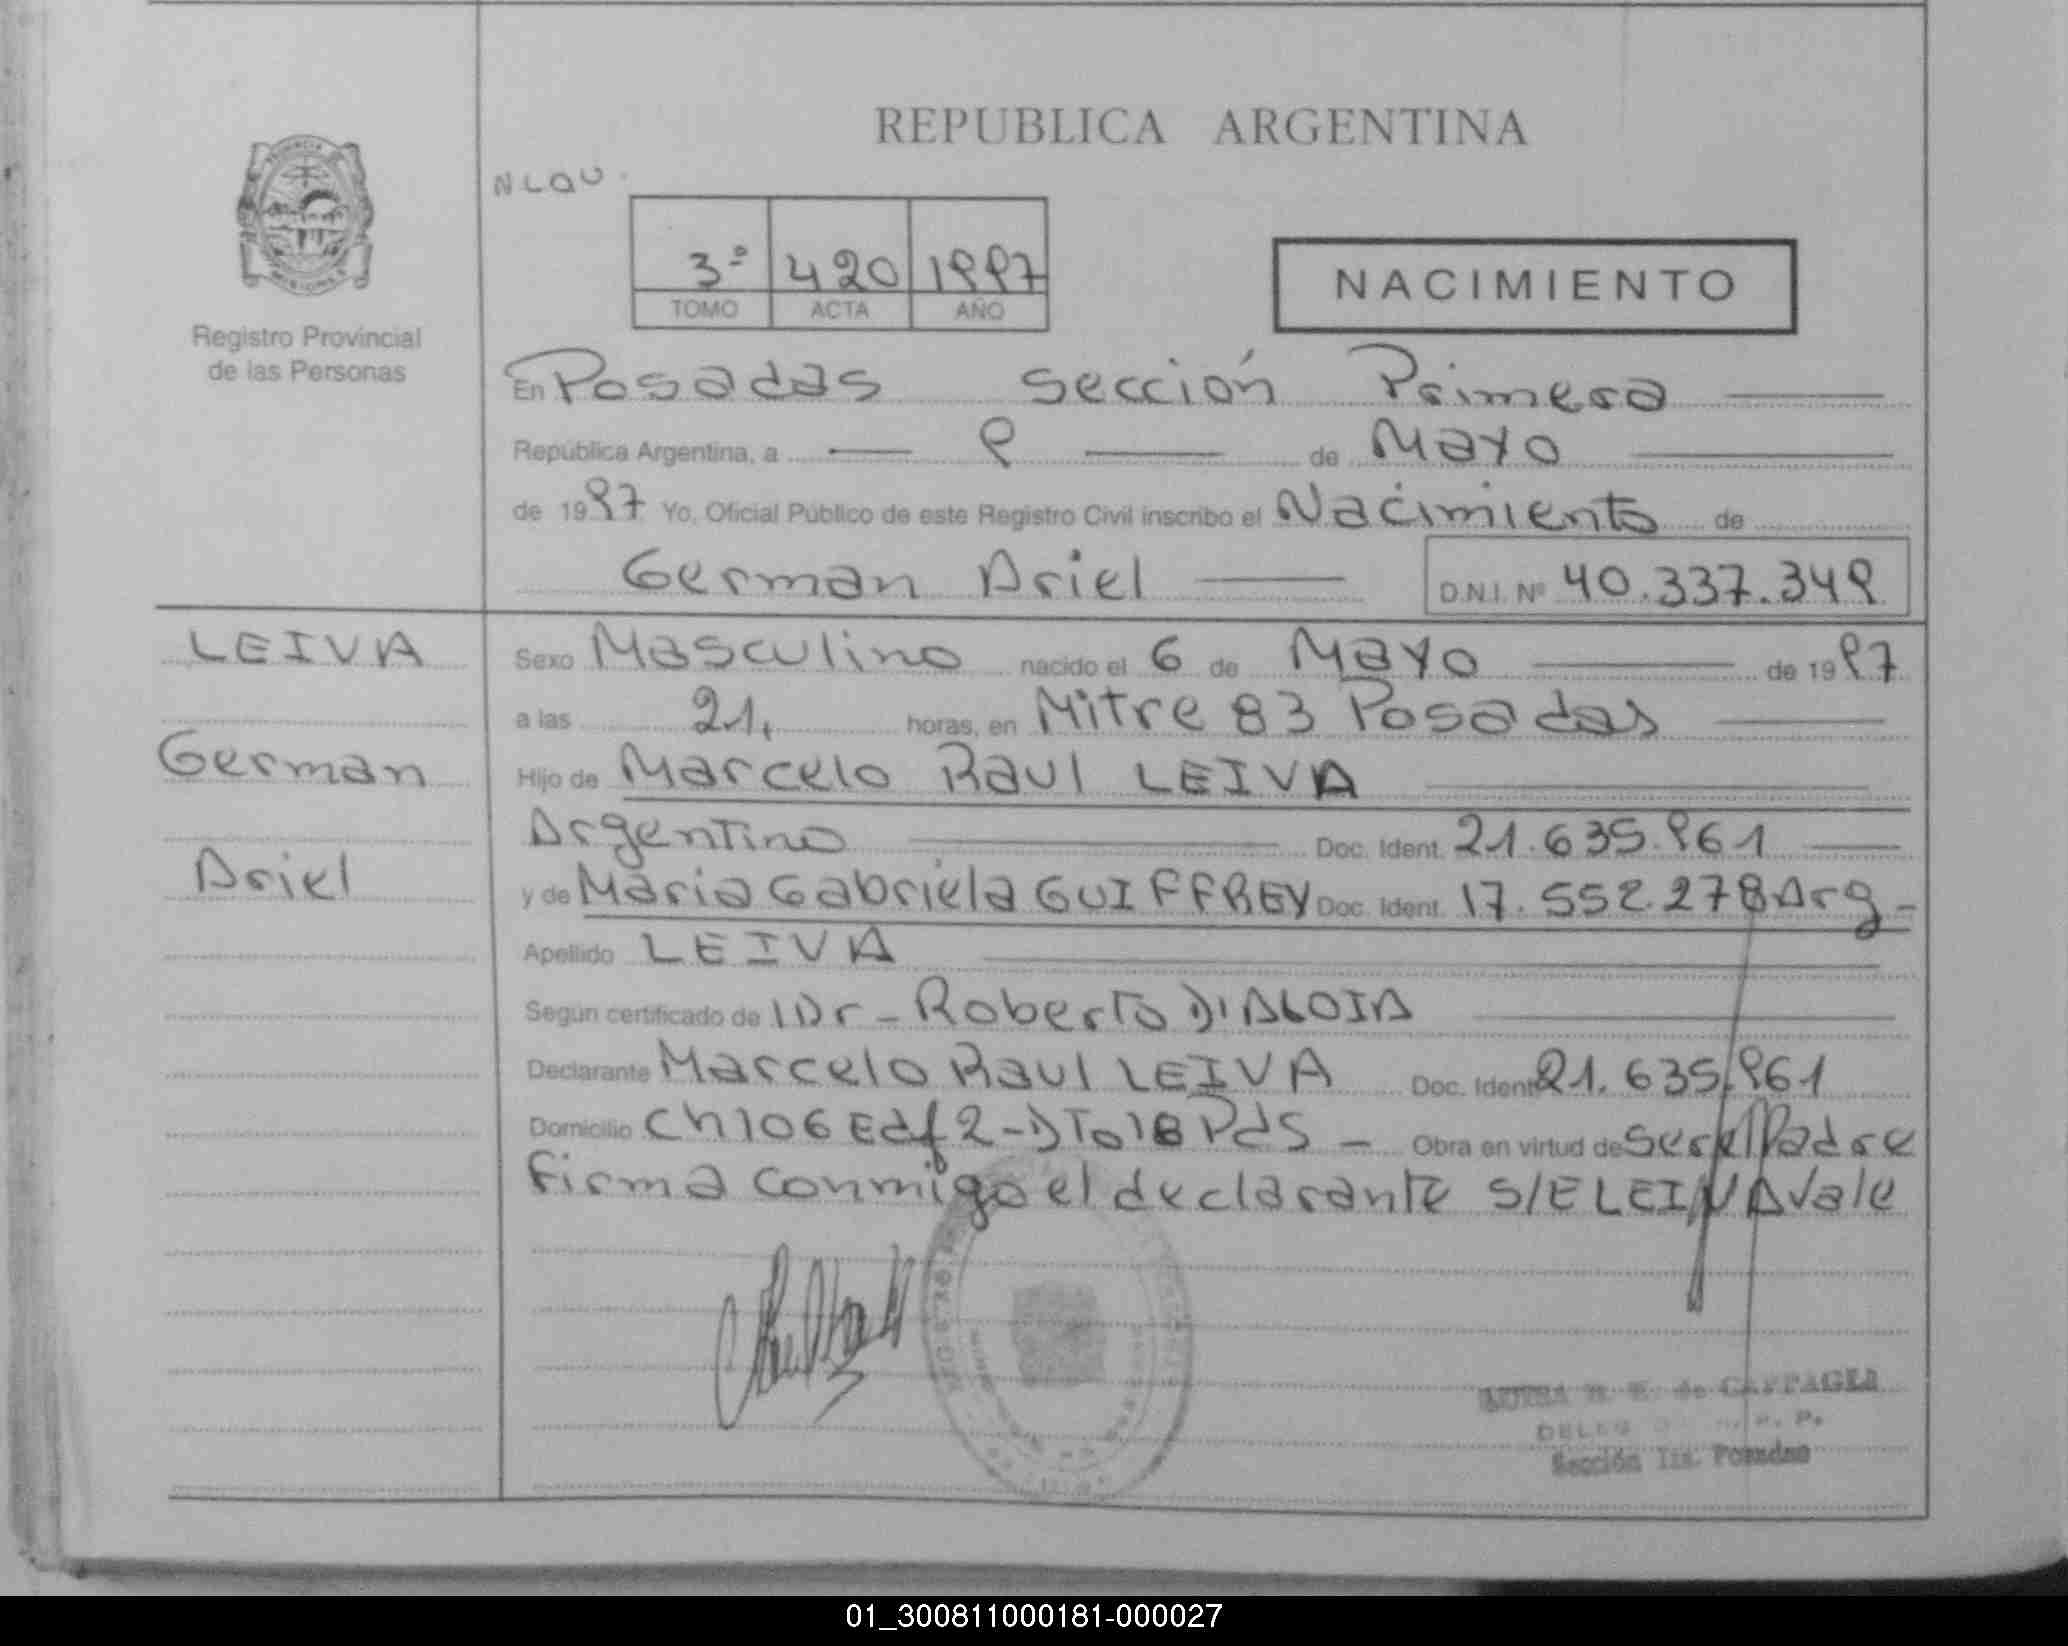 REPUBLICA ARGENTINA
NLQU.
3º 420 1997
TOMO ACTA AÑO
NACIMIENTO
PROVINCIA
MISIONES
Registro Provincial
de las Personas
En Posadas sección Primera
República Argentina, a 9 de Mayo
de 1997 Yo, Oficial Público de este Registro Civil inscribo el Nacimiento de
German Ariel D.N.I. Nº 40.337.349
LEIVA
German
Ariel
Sexo Masculino nacido el 6 de Mayo de 1997
a las 21, horas, en Mitre 83 Posadas
Hijo de Marcelo Raul LEIVA
Argentino Doc. Ident. 21.635.961
y de Maria Gabriela GUIFFREY Doc. Ident. 17.552.278 Arg-
Apellido LEIVA
Según certificado de Dr- Roberto D'ALOIA
Declarante Marcelo Raul LEIVA Doc. Ident. 21.635.961
Domicilio Ch 106 Edf 2-DTo 1B Pds - Obra en virtud de ser el Padre
Firma conmigo el declarante S/E LEIVA Vale
de CAFFAGLI
R. P.
Sección 1ra. Posadas
01_300811000181-000027